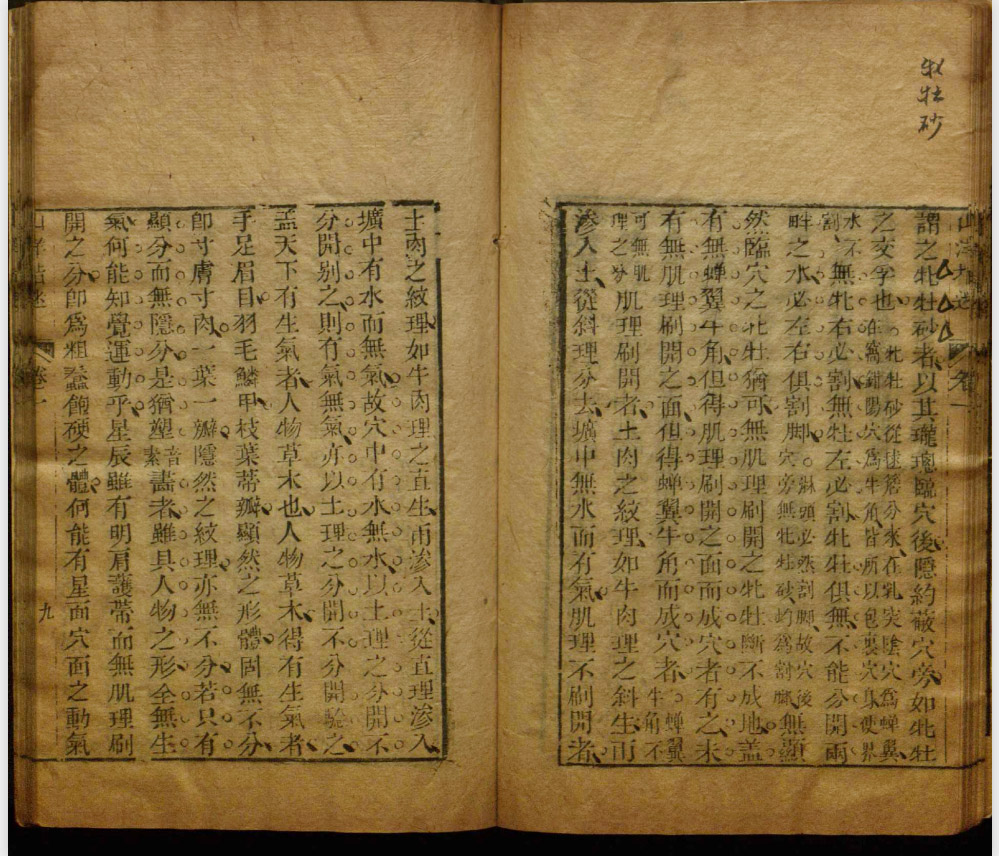 牝牡砂
謂之牝牡砂者以其瓏璁臨穴後隱約蔽穴旁如牝牡
之交孚也牝牡砂從毬簷分來在乳突陰穴為蟬翼
在窩鉗陽穴為牛角皆所以包裹穴身使界
水不割無牝右必割無牡左必割牝牡俱無不能分開兩
畔之水必左右俱割脚淋頭必然割脚故穴後無顯
穴旁無牝牡砂均為割脚
然臨穴之牝牡猶可無肌理刷開之牝牡斷不成地蓋
有無蟬翼牛角但得肌理刷開之面而成穴者有之未
有無肌理刷開之面但得蟬翼牛角而成穴者蟬翼牛角不
可無肌理之分肌理刷開者土肉之紋理如牛肉理之斜生雨
滲入土從斜理分去壙中無水而有氣肌理不刷開者
土肉之紋理如牛肉理之直生雨滲入土從直理滲入
壙中有水而無氣故穴中有水無水以土理之分開不
分開別之則有氣無氣亦以土理之分開不分開驗之
蓋天下有生氣者人物草木也人物草木得有生氣者
手足眉目羽毛鱗甲枝葉蒂瓣顯然之形體固無不分
卽寸膚寸肉一葉一瓣隱然之紋理亦無不分若只有
顯分而無隱分是猶塑音素畵者雖具人物之形全無生
氣何能知覺運動乎星辰雖有明肩護帶而無肌理刷
開之分卽為粗蠢飽硬之體何能有星面穴面之動氣
卷一
九